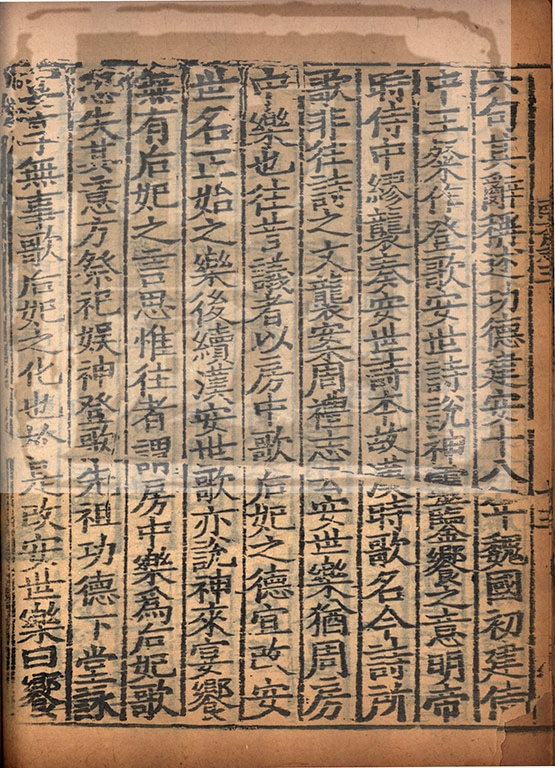 六句其辭稱述功德建安十八年魏國初建侍
中王粲作登歌安世詩說神靈鑒饗之意明帝
時侍中繆襲奏安世詩本故漢時歌名今詩所
歌非往詩之文襲案周禮志云安世樂猶周房
中樂也往昔議者以房中歌后妃之德宜改安
世名正始之樂後續漢安世歌亦說神來宴饗
無有后妃之言思惟往者謂房中樂爲后妃歌
恐失其意方祭祀娛神登歌先祖功德下堂詠
宴享無事歌后妃之化也於是改安世樂曰饗